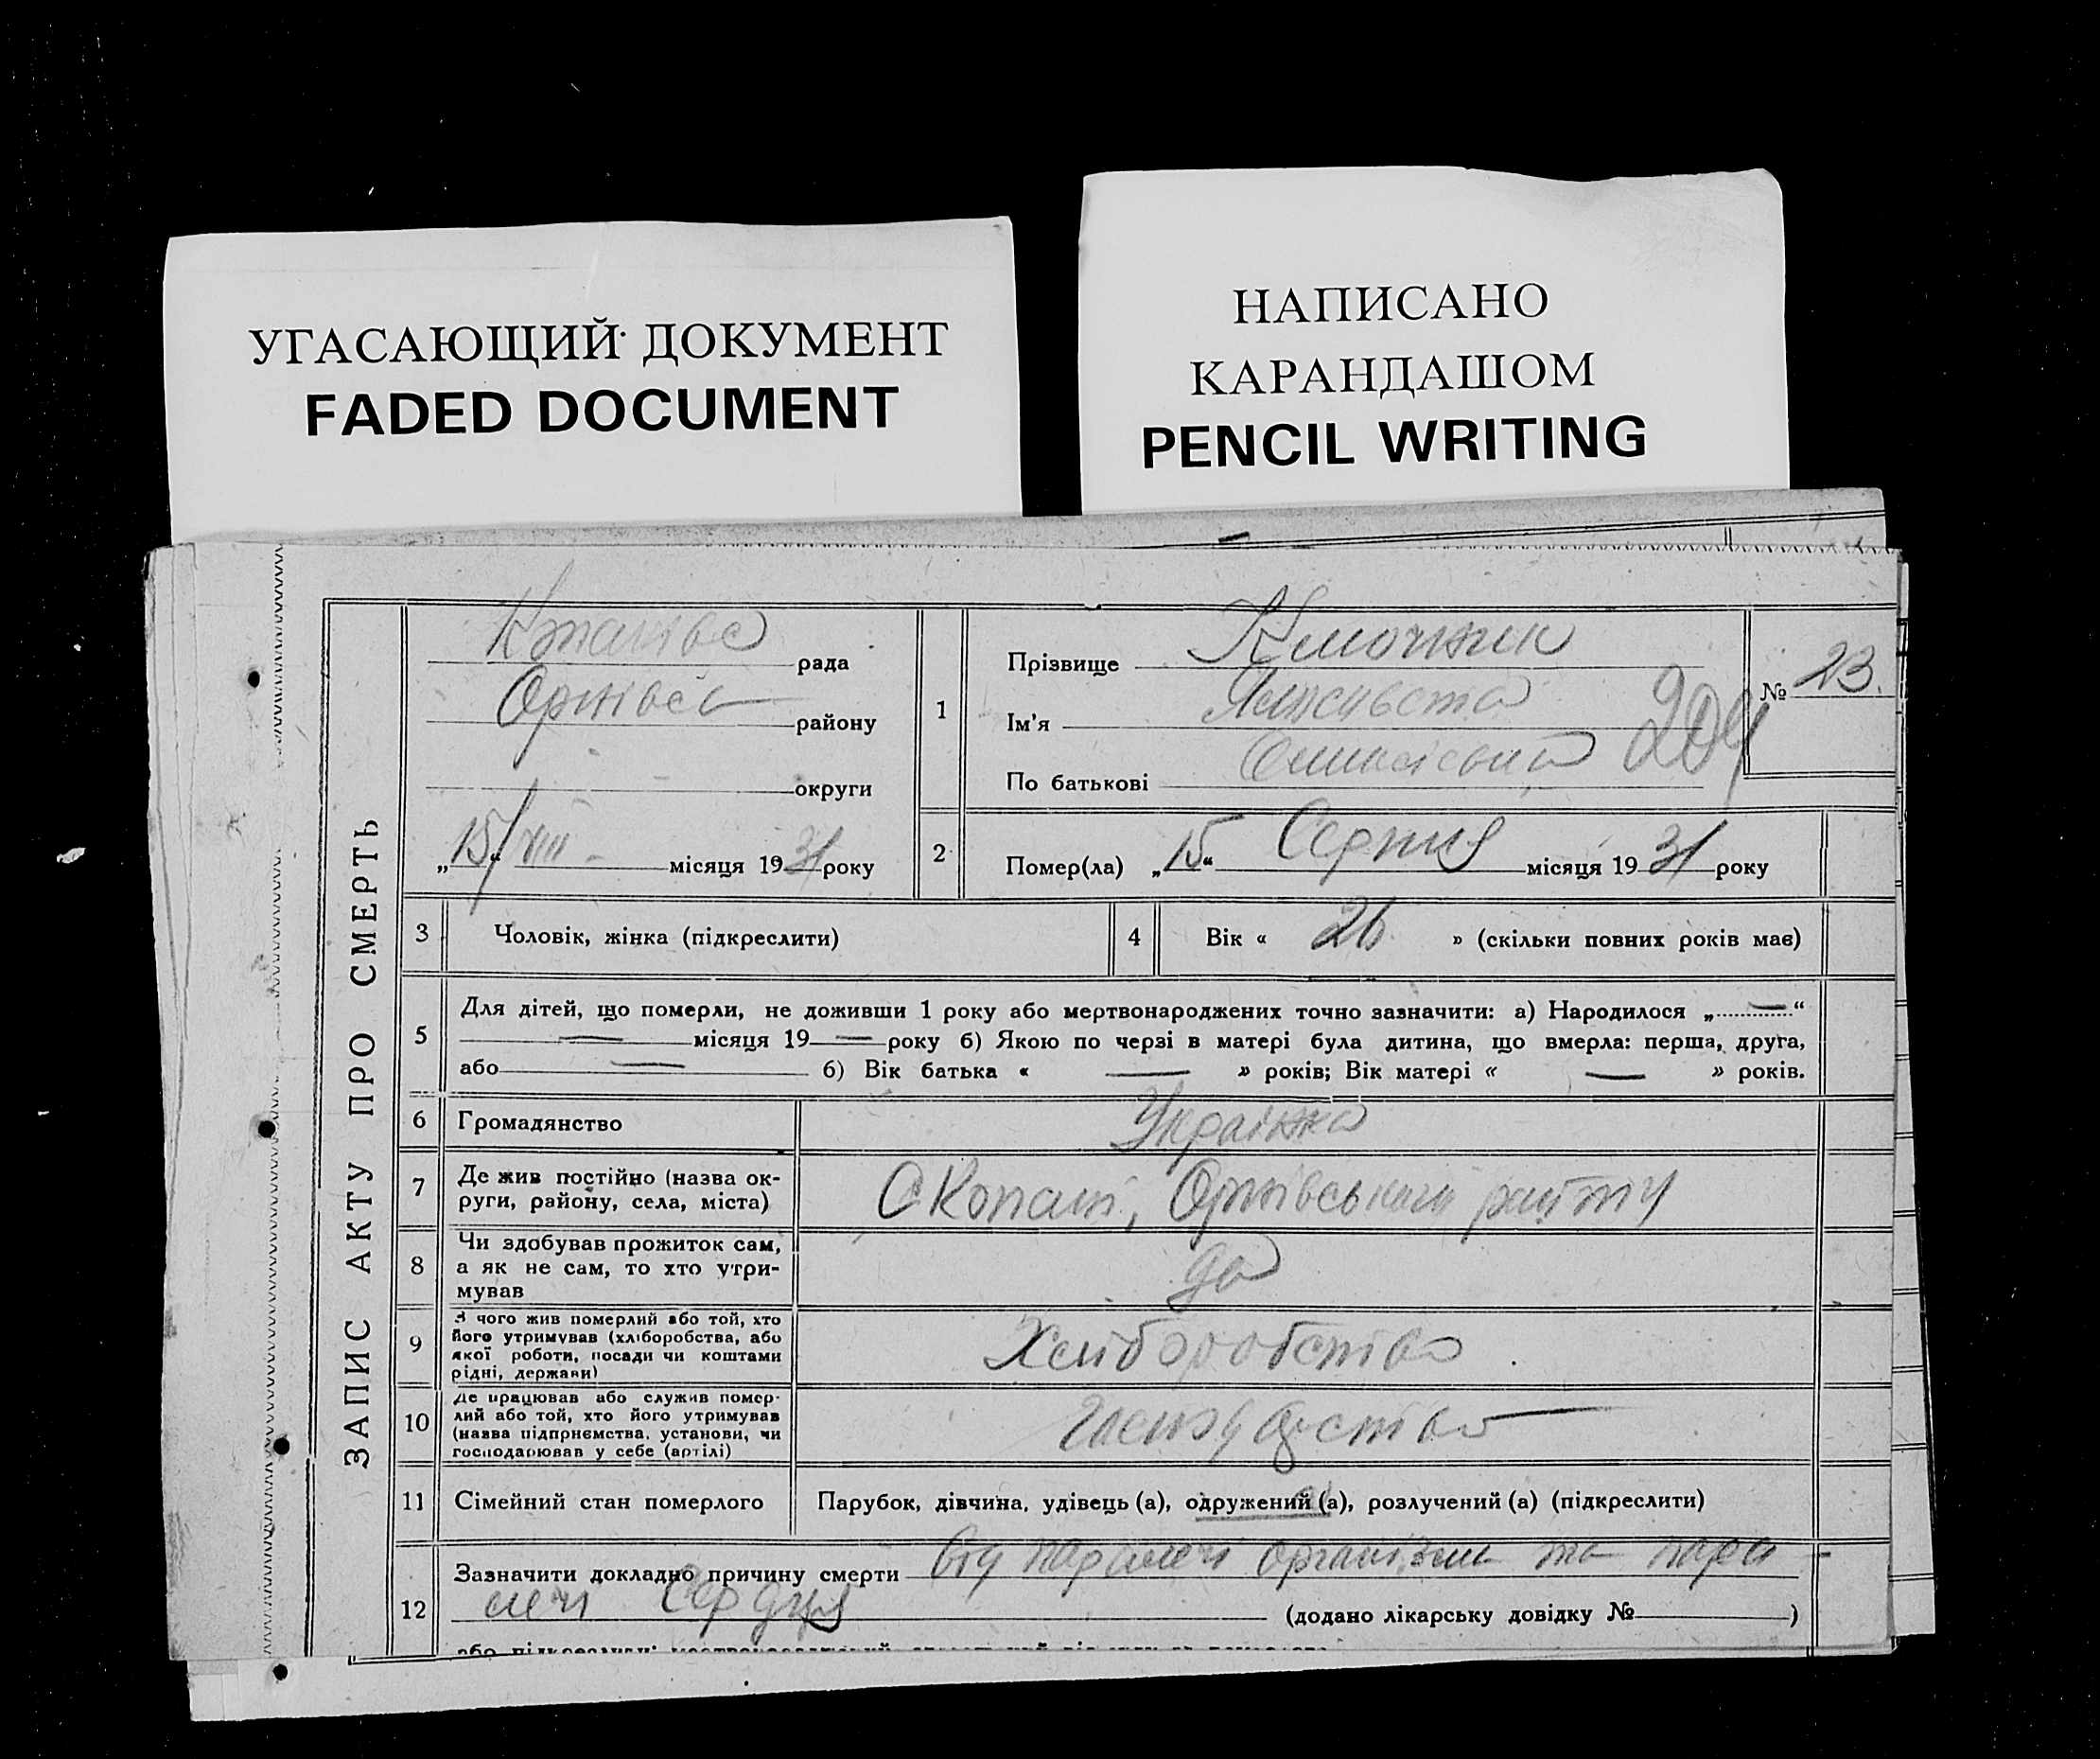 УГАСАЮЩИЙ ДОКУМЕНТ
FADED DOCUMENT
НАПИСАНО
КАРАНДАШОМ
PENCIL WRITING
ЗАПИС АКТУ ПРО СМЕРТЬ
рада
району
округи
„15/VIII - місяця 1931 року
1
Прізвище Клюжник
Ім'я
По батькові
204
№ 23.
2
Помер(ла) „15“ Серпня місяця 1931 року
3
Чоловік, жінка (підкреслити)
4
Вік « 26 » (скільки повних років має)
5
Для дітей, що померли, не доживши 1 року або мертвонароджених точно зазначити: а) Народилося „—“
— місяця 19— року б) Якою по черзі в матері була дитина, що вмерла: перша, друга,
або — б) Вік батька « — » років; Вік матері « — » років.
6
Громадянство Українка
7
Де жив постійно (назва ок-
руги, району, села, міста)
С Копані, Оржівського району
8
Чи здобував прожиток сам,
а як не сам, то хто утри-
мував
да
9
З чого жив померлий або той, хто
його утримував (хліборобства, або
якої роботи, посади чи коштами
рідні, держави)
Хліборобство
10
Де працював або служив помер-
лий або той, хто його утримував
(назва підприємства, установи, чи
господарював у себе (артілі)
11
Сімейний стан померлого
Парубок, дівчина, удівець (а), одружений (а), розлучений (а) (підкреслити)
12
Зазначити докладно причину смерти від паралечі організма та пара
лечі Сердця (додано лікарську довідку № )